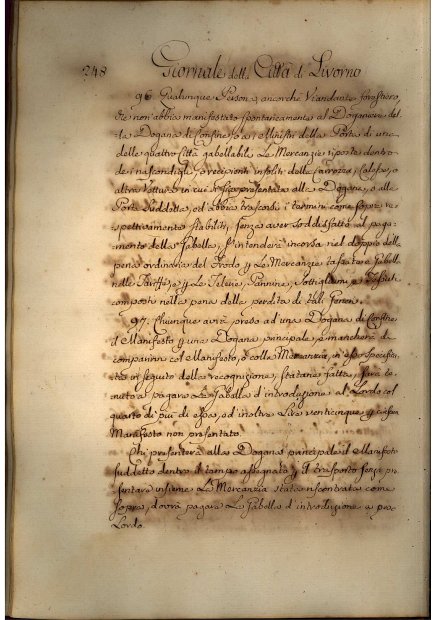 248 Giornale della Città di Livorno
96. Qualunque Persona, ancorchè Viandante forestiero,
che non abbia manifestato spontaneamente al Doganiere del-
la Dogana di Confine, o a' Ministri della Porta di una
delle quattro Città gabellabili Le Mercanzie riposte dentro
de' nascondigli, o recipienti insoliti delle Carrozze, Calessi, o
altra Vettura in cui presentata alle Dogane, o alle
Porte suddette, ed abbia trascorsi i termini come sopra re-
spettivamente stabiliti, senza aver soddisfatto al paga-
mento della Gabella, s'intenderà incorsa nel doppio della
pena ordinaria del frodo Le Mercanzie tassate a Gabella
nelle Tariffe, e Le Telerie, Pannine,
composti nella pena della perdita di tali Generi.
97. Chiunque avrà preso ad una Dogana di Confine
il Manifesto una Dogana principale, e mancherà di
comparirvi col Manifesto, o colla Mercanzia, in esso specifica-
ta in seguito della recognizione, statane fatta, sarà te-
nuto a pagare La Gabella d'introduzione al Lordo col
quarto di più di essa, ed inoltre Lire venticinque
Manifesto non presentato.
Chi presenterà alla Dogana principale il Manifesto
suddetto dentro il tempo assegnato il trasporto senza pre-
sentare insieme La Mercanzia stata riscontrata come
sopra, dovrà pagare La Gabella d'introduzione a peso
Lordo.